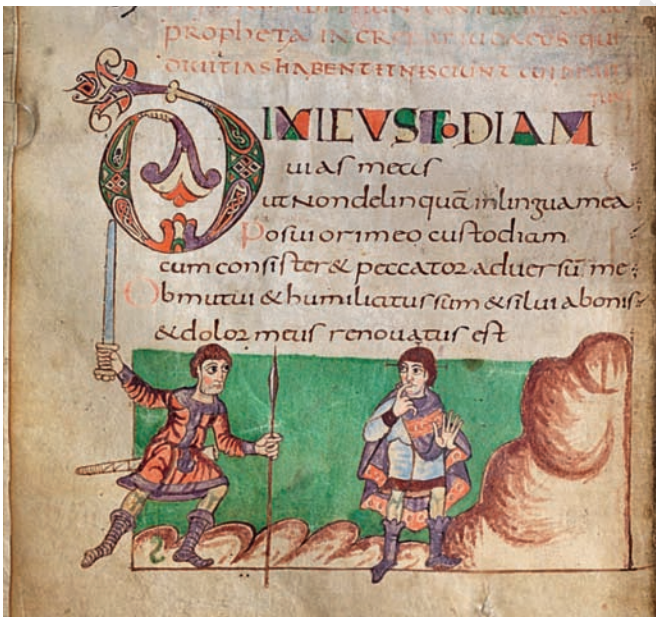 propheta INCREPAT IUDAEOS QUI
DIUITIAS HABENT ET NESCIUNT CUI
DIXI CUSTODIAM
uias meas
ut Non delinquā in lingua mea;
Posui ori meo custodiam
cum consister& peccator aduersū me:
Obmutui & humiliatus sum & silui a bonis:
& dolor meus renouatus est